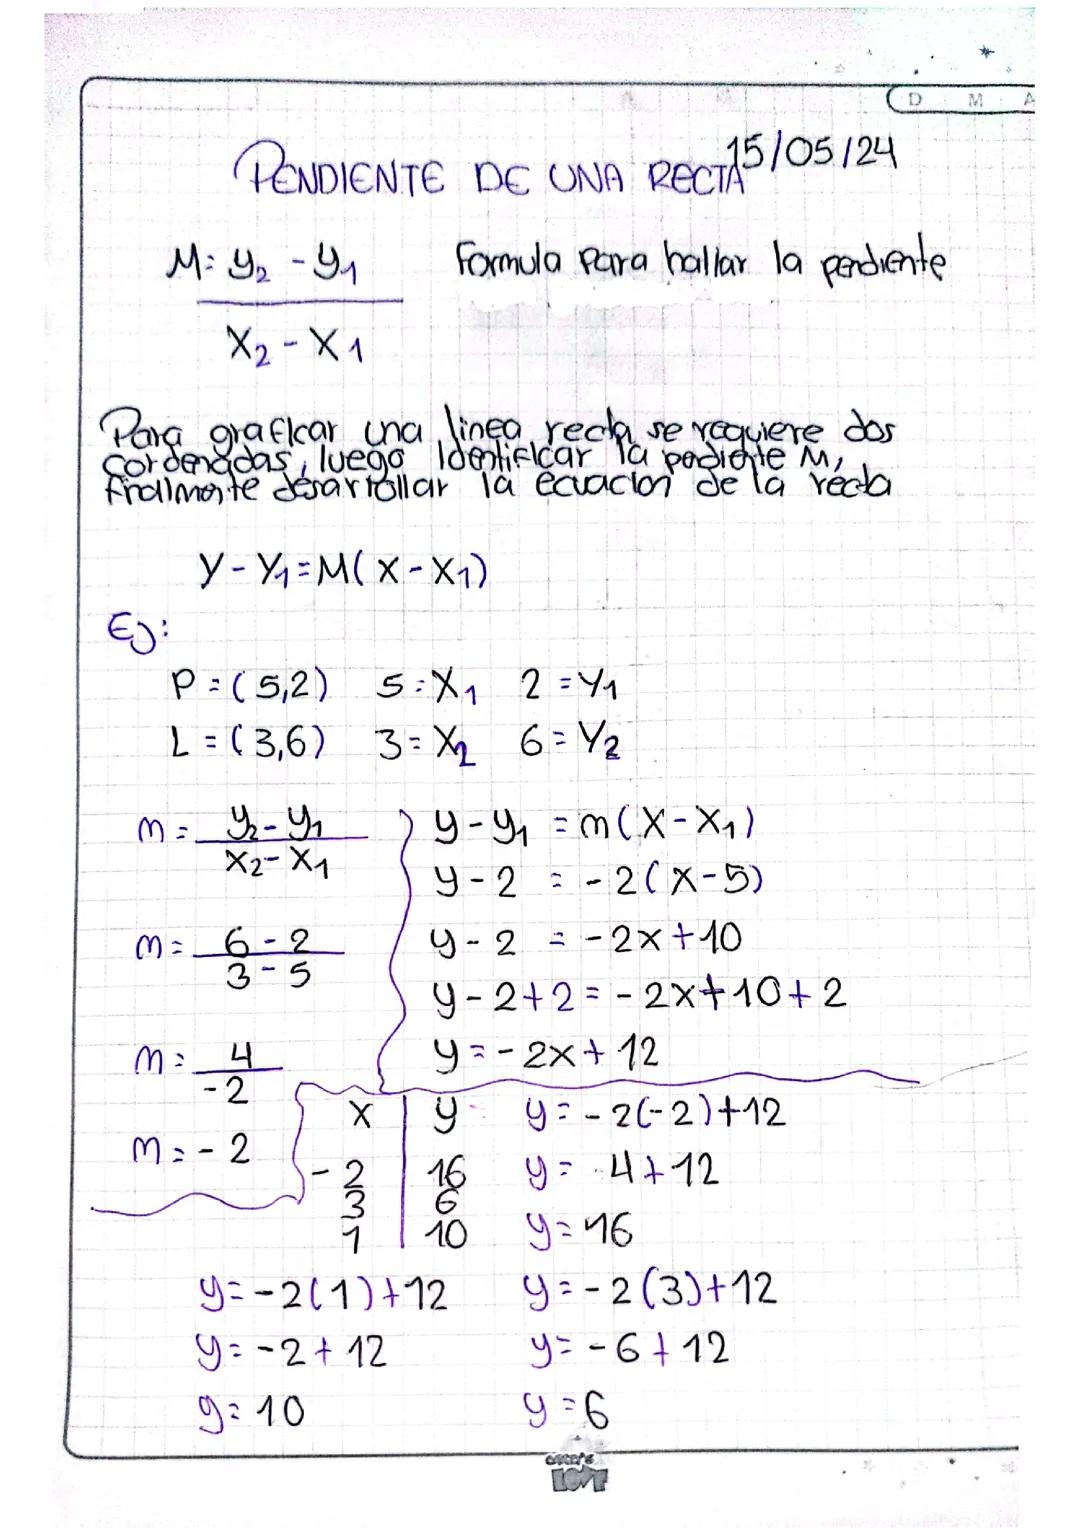 D M A
15/05/24
PENDIENTE DE UNA RECTA
M: y₂ - y₁ Formula para hallar la pendiente
X₂ - X₁
Para graficar una linea recta se requiere dos
cordenadas, luego Identificar la pediente M,
finalmente desarrollar la ecuacion de la recta
y - y₁ = M( x - x₁)
Ej:
P = (5,2) 5 = X₁ 2 = Y₁
L = (3,6) 3 = X₂ 6 = Y₂
m = y₂ - y₁
x₂ - x₁
m = 6 - 2
3 - 5
m = 4
-2
m = - 2
y - y₁ = m(X - X₁)
y - 2 = - 2(X - 5)
y - 2 = - 2x + 10
y - 2 + 2 = - 2x + 10 + 2
y = - 2x + 12
x y
- 2 16
3 6
1 10
y = - 2(-2) + 12
y = 4 + 12
y = 16
y = - 2(1) + 12
y = - 2 + 12
y = 10
y = - 2(3) + 12
y = - 6 + 12
y = 6
LOVE